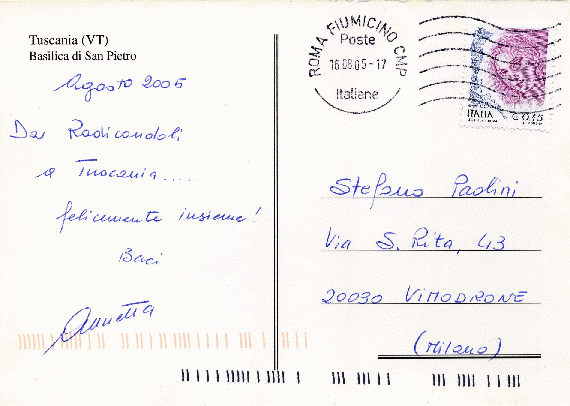 Tuscania (VT)
Basilica di San Pietro
Agosto 2005
Da Radicondoli
a Tuscania.....
felicemente insieme!
Baci
Annetta
ROMA FIUMICINO CMP
Poste
16.08.05-17
Italiane
ITALIA
€ 0,45
Stefano Paolini
Via S. Rita, 43
20090 VIMODRONE
(Milano)